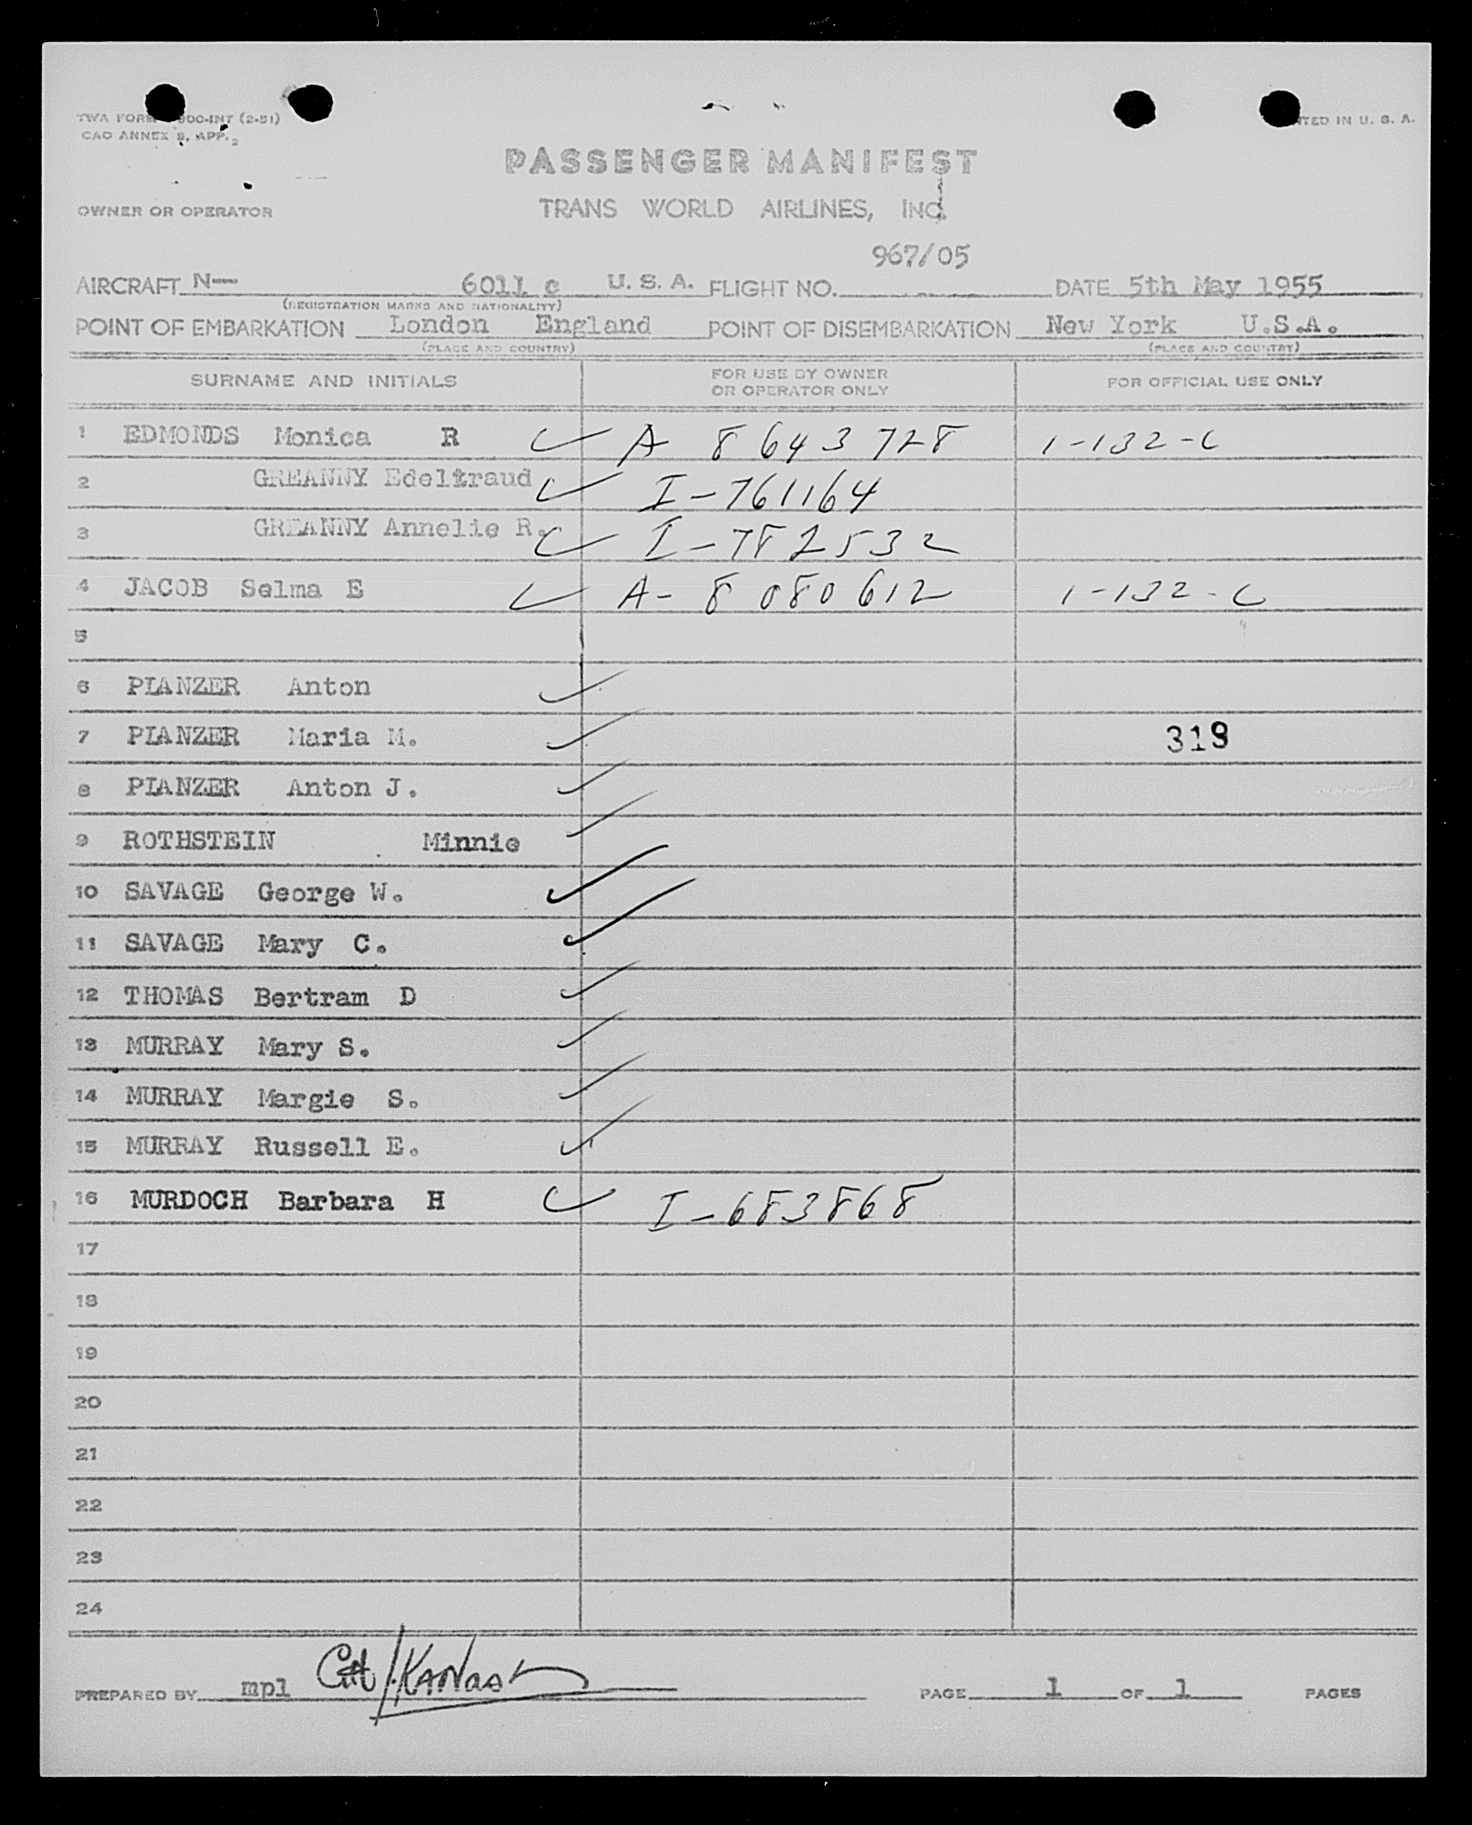 TWA FORM 900-INT (2-51)
CAO ANNEX 9, APP. 2
PRINTED IN U. S. A.
PASSENGER MANIFEST
OWNER OR OPERATOR TRANS WORLD AIRLINES, INC.
967/05
AIRCRAFT N— 6011 c U. S. A. FLIGHT NO. DATE 5th May 1955
(REGISTRATION MARKS AND NATIONALITY)
POINT OF EMBARKATION London England POINT OF DISEMBARKATION New York U.S.A.
(PLACE AND COUNTRY) (PLACE AND COUNTRY)
SURNAME AND INITIALS FOR USE BY OWNER OR OPERATOR ONLY FOR OFFICIAL USE ONLY
1 EDMONDS Monica R A 8 643 728 1-132-C
2 GREANNY Edeltraud I-761164
3 GREANNY Annelie R. I-782532
4 JACOB Selma E A-8 080 612 1-132-C
5
6 PLANZER Anton
7 PLANZER Maria M. 319
8 PLANZER Anton J.
9 ROTHSTEIN Minnie
10 SAVAGE George W.
11 SAVAGE Mary C.
12 THOMAS Bertram D
13 MURRAY Mary S.
14 MURRAY Margie S.
15 MURRAY Russell E.
16 MURDOCH Barbara H I-683868
17
18
19
20
21
22
23
24
PREPARED BY mpl PAGE 1 OF 1 PAGES